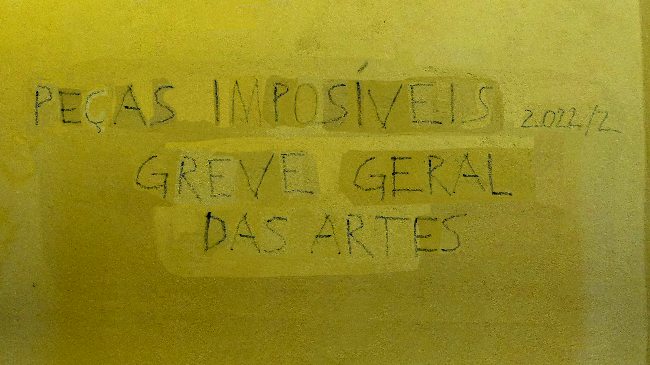 PEÇAS IMPOSÍVEIS 2.022/2
GREVE GERAL
DAS ARTES